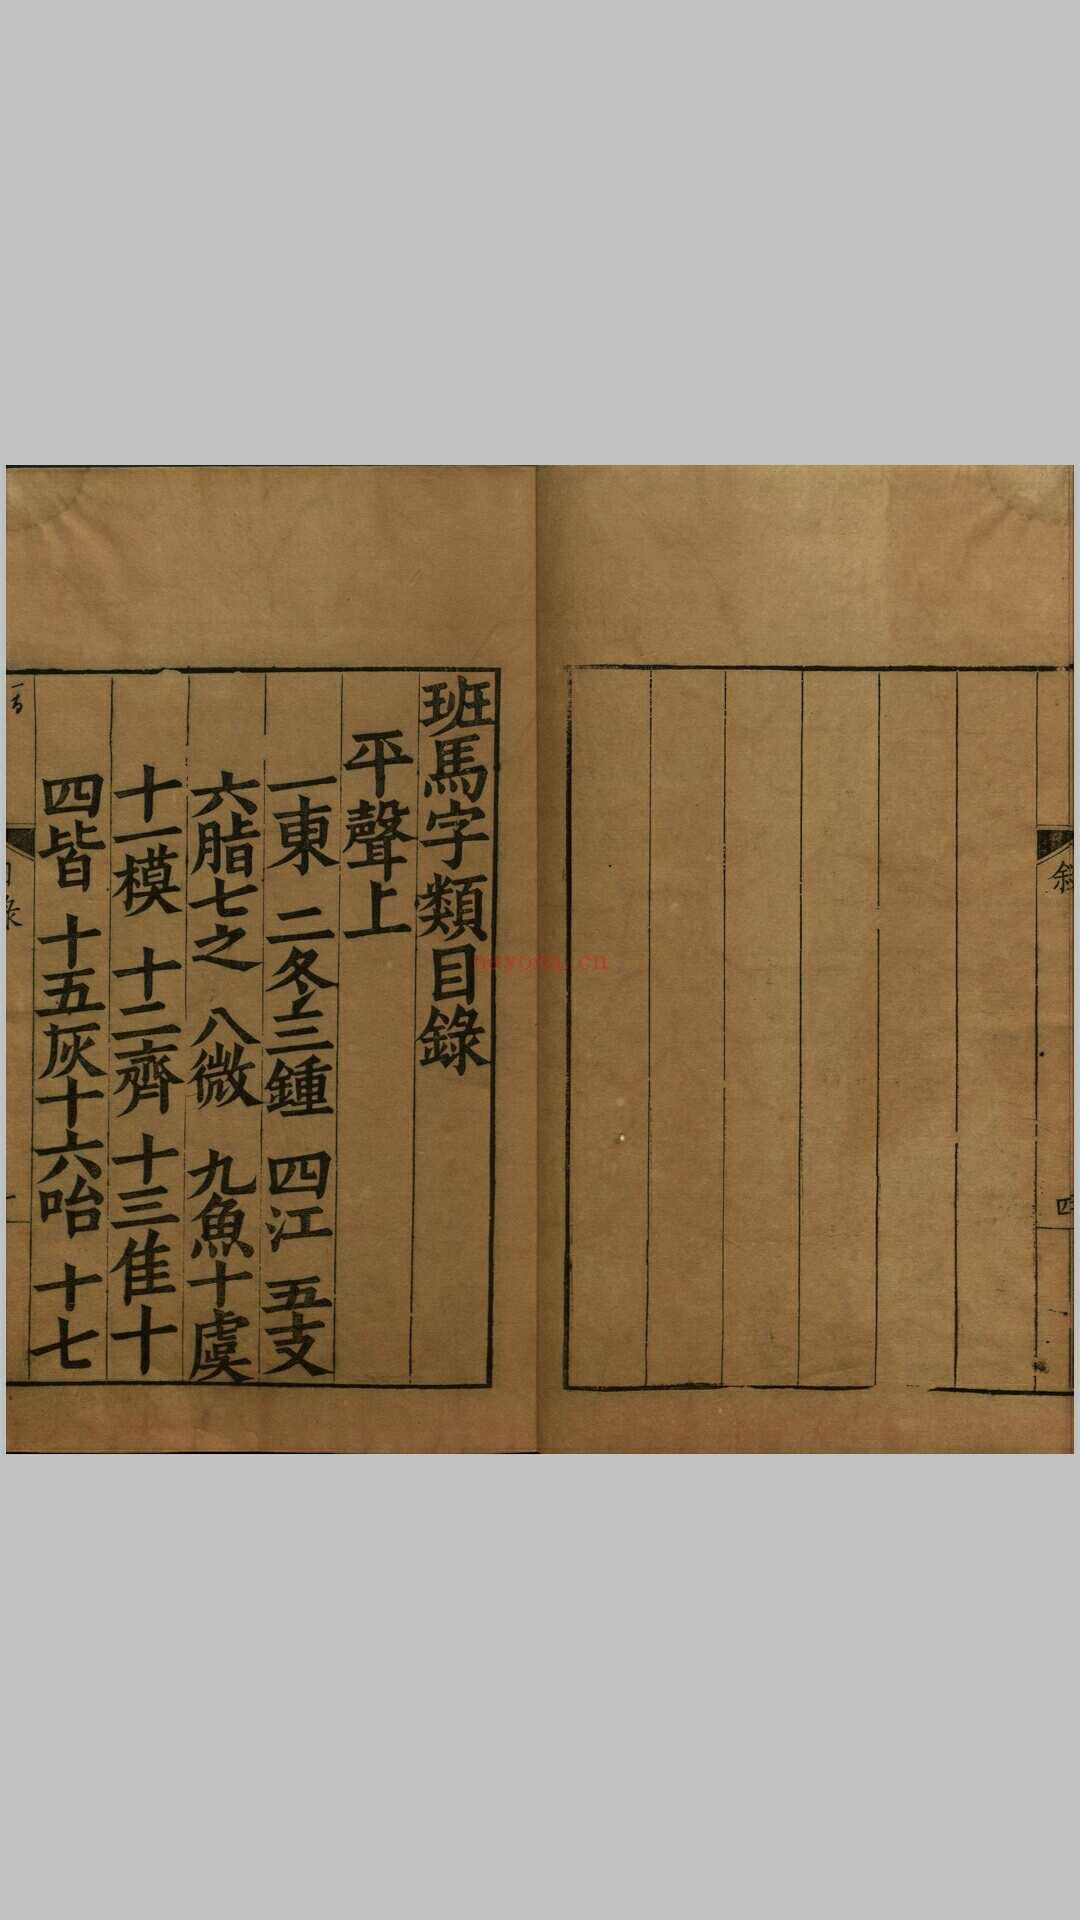 敘
四
班馬字類目錄
平聲上
一東 二冬 三鍾 四江 五支
六脂 七之 八微 九魚 十虞
十一模 十二齊 十三佳 十
四皆 十五灰 十六咍 十七
nayona.cn